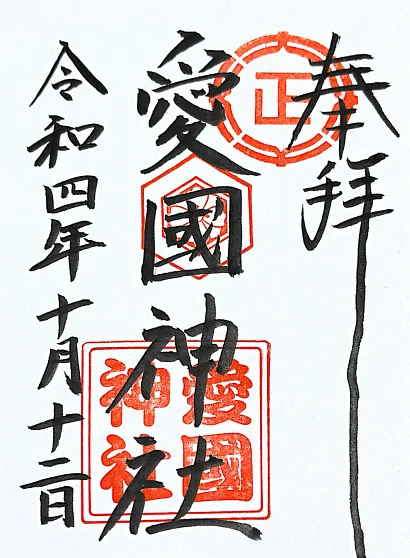 奉拝
正
愛國神社
愛國
神社
令和四年十月十二日